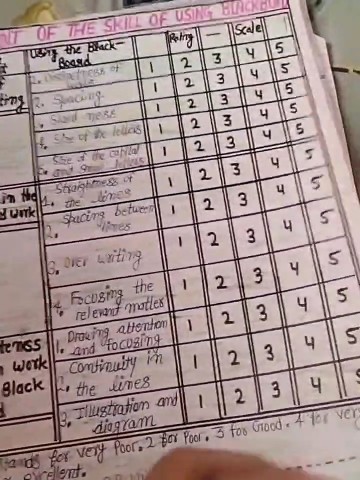 NT OF THE SKILL OF USING BLACKBOARD
Using the Black-
Board
Rating — Scale
1. Distinctness of
1 2 3 4 5
2. Spacing
1 2 3 4 5
1 2 3 4 5
4. Size of the letters
1 2 3 4 5
Size of the capital
and small letters
1 2 3 4 5
in the
d work
1. Straightness of
the lines
1 2 3 4 5
2. Spacing between
lines
1 2 3 4 5
3. over writing
1 2 3 4 5
4. Focusing the
relevant matter
1 2 3 4 5
teness
work
Black
1. Drawing attention
and focusing
1 2 3 4 5
2. Continuity in
the lines
1 2 3 4 5
3. Illustration and
diagram
1 2 3 4 5
for very Poor. 2 for Poor. 3 for Good. 4 for very
excellent.